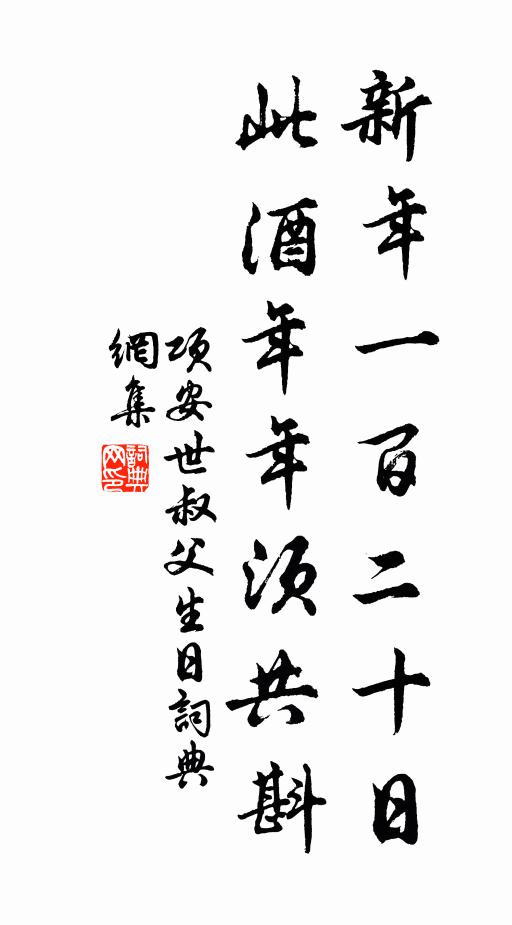 新年一百二十日
此酒年年須共斟
項安世叔父生日詞典
網集
詞典
网印